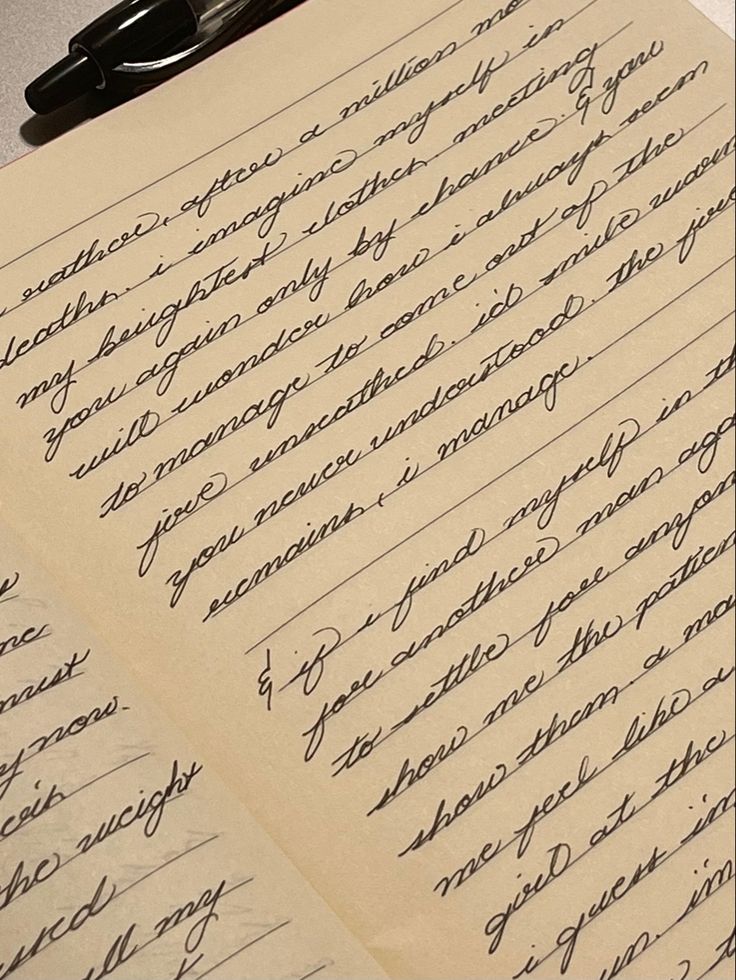 rather, after a million
deaths. i imagine myself in
my brightest clothes, meeting
you again only by chance. & you
will wonder how i always seem
to manage to come out of the
fire unscathed. i'd smile
you never understood. the fire
remains, i manage.
& if i find myself in
for another man
to settle for
show me the
show them. a
me feel like a
girl at the
i guess
un. i'm
must
now.
he weight
my